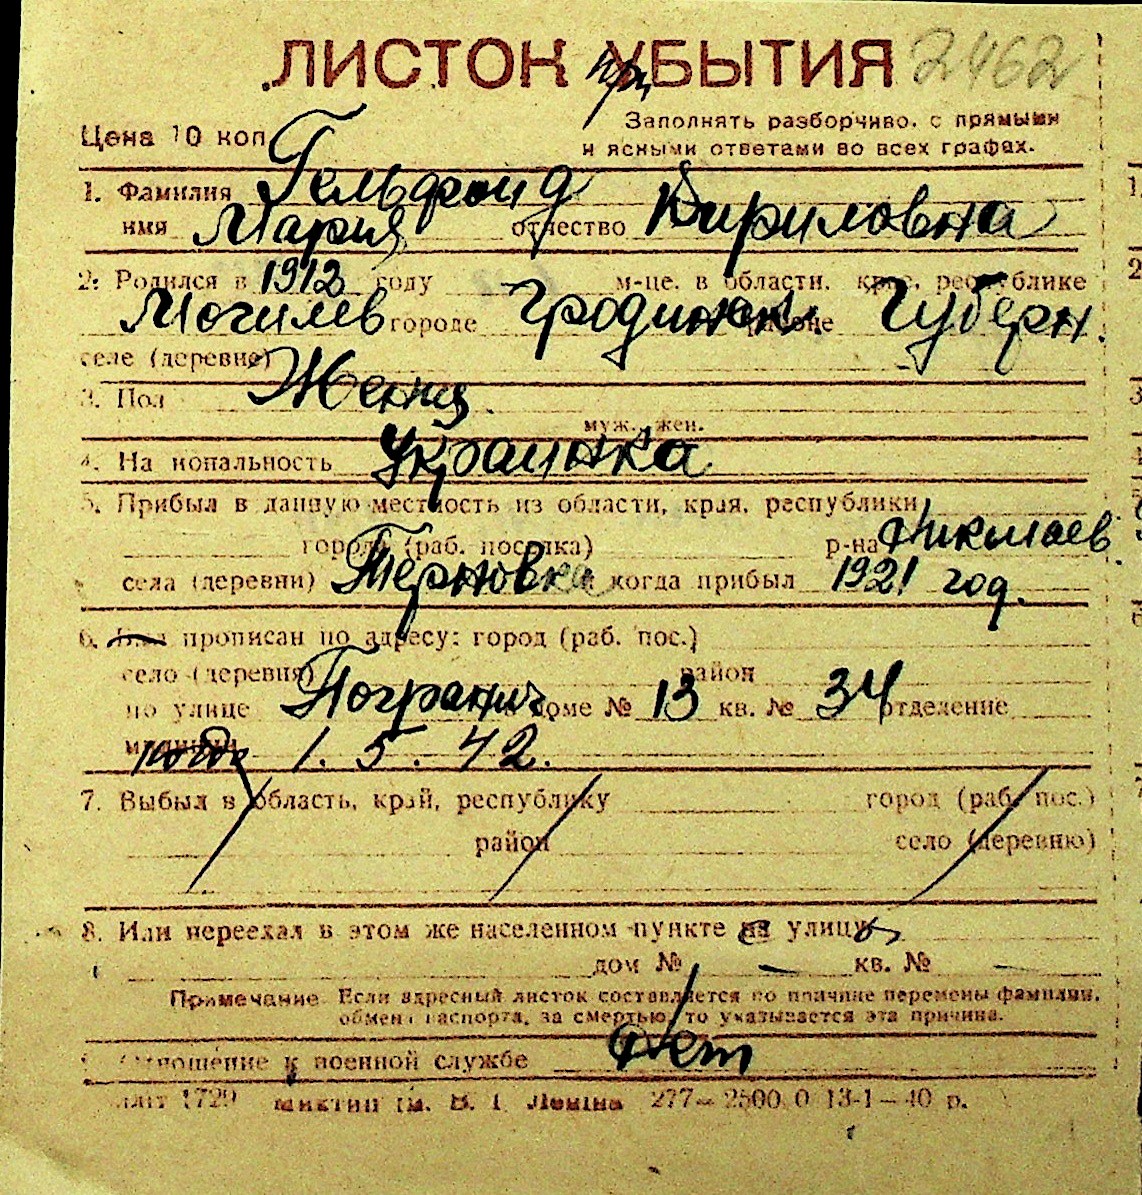 ЛИСТОК УБЫТИЯ 2462
при
Цена 10 коп
Заполнять разборчиво, с прямыми
и ясными ответами во всех графах.
1. Фамилия Гельфонд
имя Мария отчество Кириловна
2. Родился в 1912 году м-це. в области, крае, республике
Могилев городе Гродненск. районе Губерн.
селе (деревне)
3. Пол Женщ.
муж. жен.
4. Национальность Украинка
5. Прибыл в данную местность из области, края, республики
города (раб. поселка) р-на Николаев.
села (деревни) Терновка и когда прибыл 1921 год.
6. Был прописан по адресу: город (раб. пос.)
село (деревня) район
по улице Погранич. в доме № 13 кв. № 34 отделение
милиции 1. 5. 42.
7. Выбыл в область, край, республику город (раб. пос.)
район село (деревню)
8. Или переехал в этом же населенном пункте на улицу
дом № — кв. № —
Примечание Если адресный листок составляется по причине перемены фамилии,
обмена паспорта, за смертью, то указывается эта причина.
Отношение к военной службе Нет
1729 Леніна 277—2500.0 13-1—40 р.